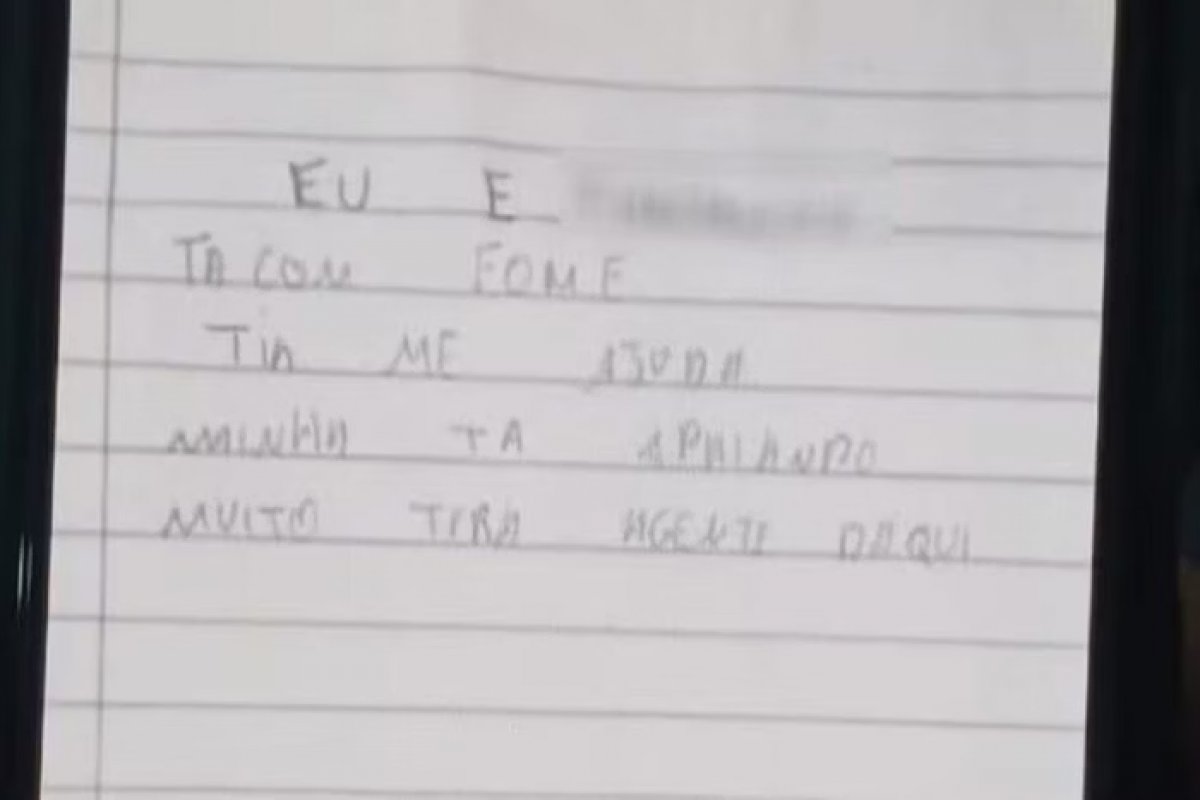 EU E
TA COM FOME
TIA ME AJUDA
MINHA TA APAIANDO
MUITO TIRA AGENTI DAQUI